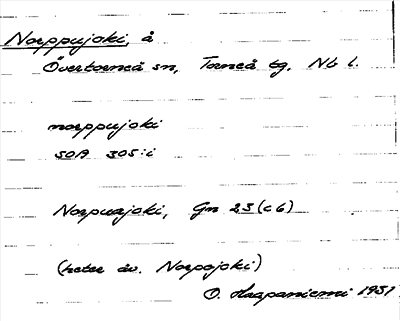 Norppujoki, å
Övertorneå sn, Torneå tg, Nb l.
norppujoki
SOA 305:i
Norpuajoki, Gn 23 (c6)
(heter äv. Norpojoki)
O. Haapaniemi 1951